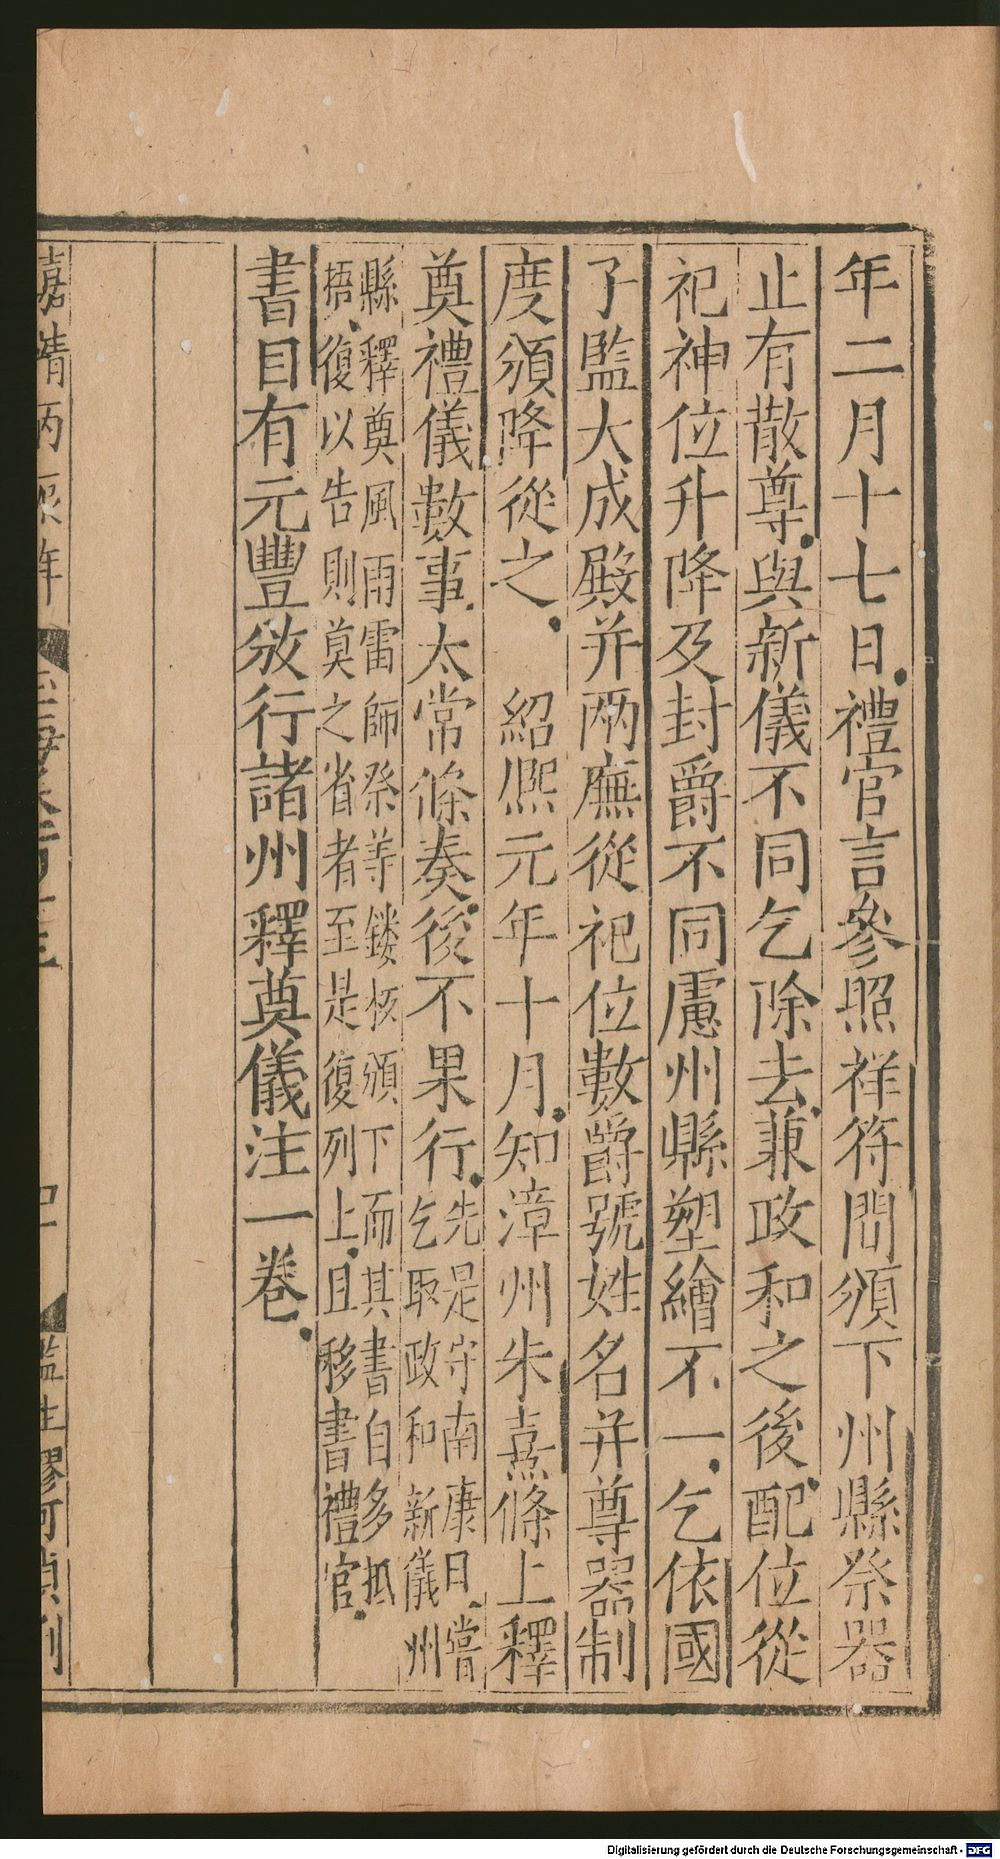 年二月十七日禮官言參照祥符間頒下州縣祭器
止有散尊與新儀不同乞除去兼政和之後配位從
祀神位升降及封爵不同慮州縣塑繪不一乞依國
子監大成殿并兩廡從祀位數爵號姓名并尊器制
度頒降從之　紹熙元年十月知漳州朱熹條上釋
奠禮儀數事太常條奏後不果行先是守南康日嘗
乞取政和新儀州
縣釋奠風雨雷師祭等鏤板頒下而其書自多抵
捂復以告則莫之省者至是復列上且移書禮官
書目有元豐放行諸州釋奠儀注一卷
嘉靖丙辰年
玉海卷
監生廖可貞刊
Digitalisierung gefördert durch die Deutsche Forschungsgemeinschaft - DFG